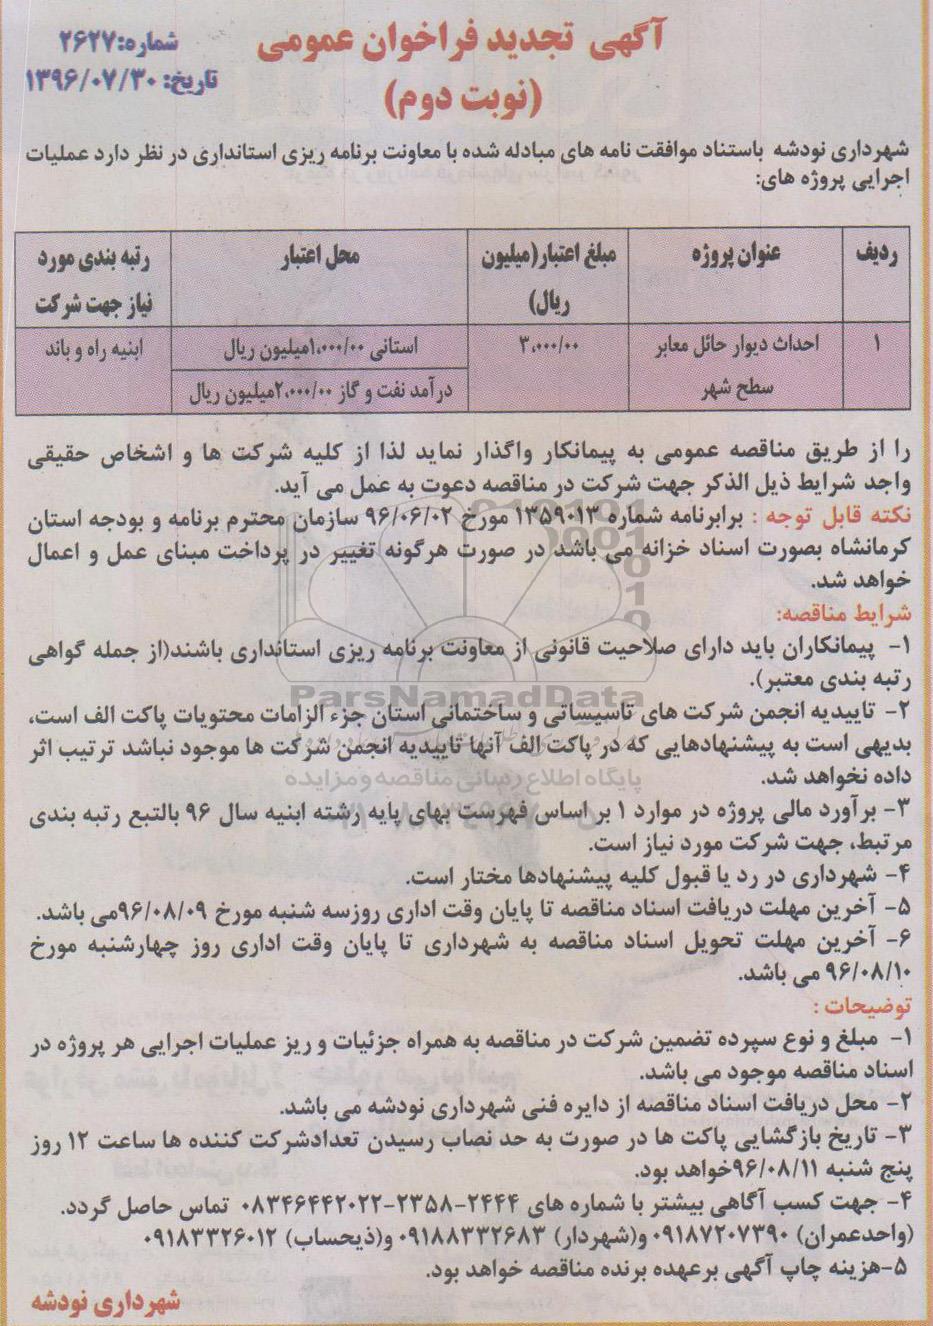 آگهی تجدید فراخوان عمومی
(نوبت دوم)
شماره: ۲۶۲۷
تاریخ: ۱۳۹۶/۰۷/۳۰
شهرداری نودشه باستناد موافقت نامه های مبادله شده با معاونت برنامه ریزی استانداری در نظر دارد عملیات
اجرایی پروژه های:
ردیف عنوان پروژه مبلغ اعتبار(میلیون ریال) محل اعتبار رتبه بندی مورد نیاز جهت شرکت
۱ احداث دیوار حائل معابر سطح شهر ۳،۰۰۰/۰۰ استانی ۱،۰۰۰/۰۰میلیون ریال ابنیه راه و باند
درآمد نفت و گاز ۲،۰۰۰/۰۰میلیون ریال
را از طریق مناقصه عمومی به پیمانکار واگذار نماید لذا از کلیه شرکت ها و اشخاص حقیقی
واجد شرایط ذیل الذکر جهت شرکت در مناقصه دعوت به عمل می آید.
نکته قابل توجه : برابرنامه شماره ۱۳۵۹۰۱۳ مورخ ۹۶/۰۶/۰۲ سازمان محترم برنامه و بودجه استان
کرمانشاه بصورت اسناد خزانه می باشد در صورت هرگونه تغییر در پرداخت مبنای عمل و اعمال
خواهد شد.
شرایط مناقصه:
۱- پیمانکاران باید دارای صلاحیت قانونی از معاونت برنامه ریزی استانداری باشند(از جمله گواهی
رتبه بندی معتبر).
۲- تاییدیه انجمن شرکت های تاسیساتی و ساختمانی استان جزء الزامات محتویات پاکت الف است،
بدیهی است به پیشنهادهایی که در پاکت الف آنها تاییدیه انجمن شرکت ها موجود نباشد ترتیب اثر
داده نخواهد شد.
۳- برآورد مالی پروژه در موارد ۱ بر اساس فهرست بهای پایه رشته ابنیه سال ۹۶ بالتبع رتبه بندی
مرتبط، جهت شرکت مورد نیاز است.
۴- شهرداری در رد یا قبول کلیه پیشنهادها مختار است.
۵- آخرین مهلت دریافت اسناد مناقصه تا پایان وقت اداری روزسه شنبه مورخ ۹۶/۰۸/۰۹می باشد.
۶- آخرین مهلت تحویل اسناد مناقصه به شهرداری تا پایان وقت اداری روز چهارشنبه مورخ
۹۶/۰۸/۱۰ می باشد.
توضیحات :
۱- مبلغ و نوع سپرده تضمین شرکت در مناقصه به همراه جزئیات و ریز عملیات اجرایی هر پروژه در
اسناد مناقصه موجود می باشد.
۲- محل دریافت اسناد مناقصه از دایره فنی شهرداری نودشه می باشد.
۳- تاریخ بازگشایی پاکت ها در صورت به حد نصاب رسیدن تعدادشرکت کننده ها ساعت ۱۲ روز
پنج شنبه ۹۶/۰۸/۱۱خواهد بود.
۴- جهت کسب آگاهی بیشتر با شماره های ۲۴۴۴-۲۳۵۸-۰۸۳۴۶۴۴۲۰۲۲ تماس حاصل گردد.
(واحدعمران) ۰۹۱۸۷۲۰۷۳۹۰ و(شهردار) ۰۹۱۸۸۳۳۲۶۸۳ و(ذیحساب) ۰۹۱۸۳۳۲۶۰۱۲
۵-هزینه چاپ آگهی برعهده برنده مناقصه خواهد بود.
شهرداری نودشه
ParsNamadData
پایگاه اطلاع رسانی مناقصه و مزایده